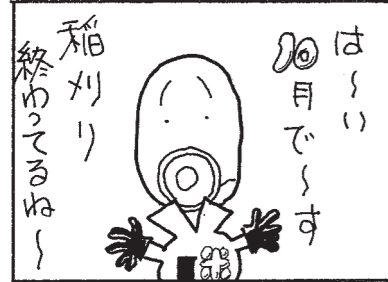 は～い
10月で～す
稲刈り
終わってるね～